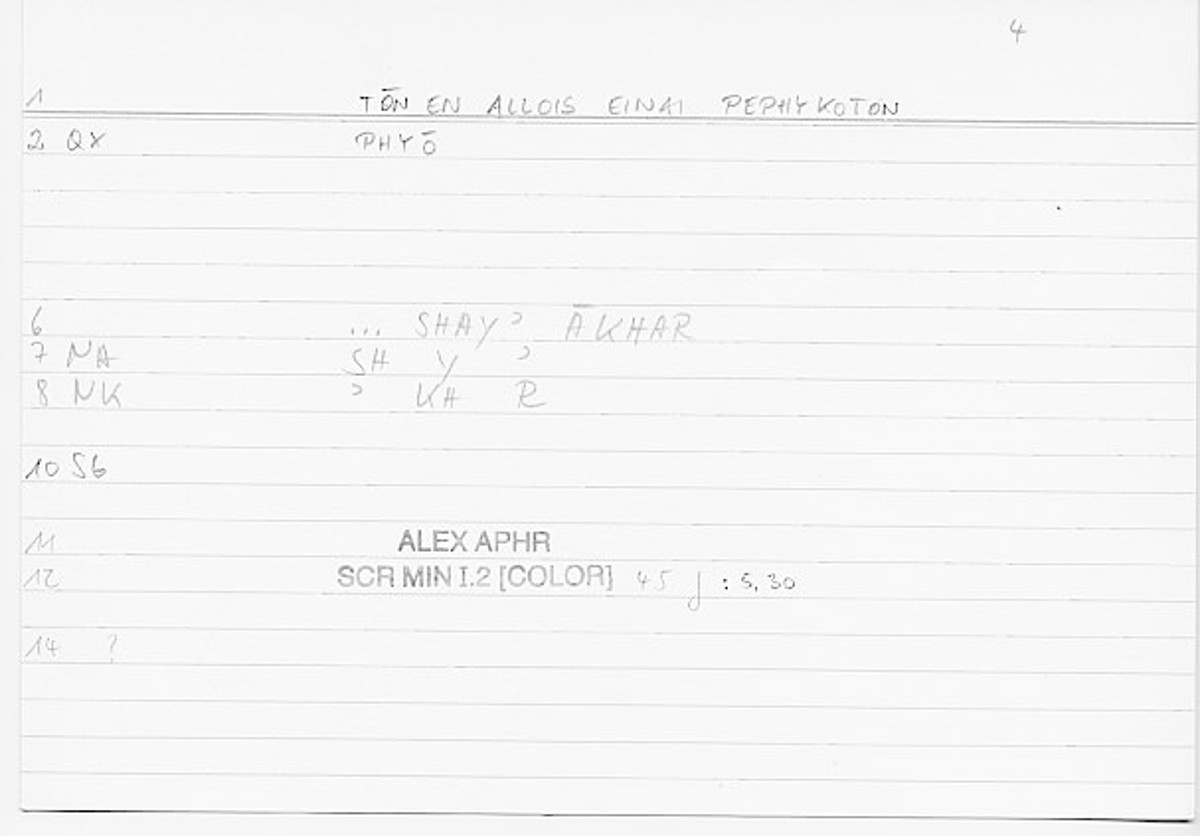 4
1 TŌN EN ALLOIS EINAI PEPHYKOTON
2 QX PHYŌ
6 ... SHAYʾ, ĀKHAR
7 NA SH Y ʾ
8 NK ʾ KH R
10 S6
11 ALEX APHR
12 SCR MIN I.2 [COLOR] 45 j : 5,30
14 ?